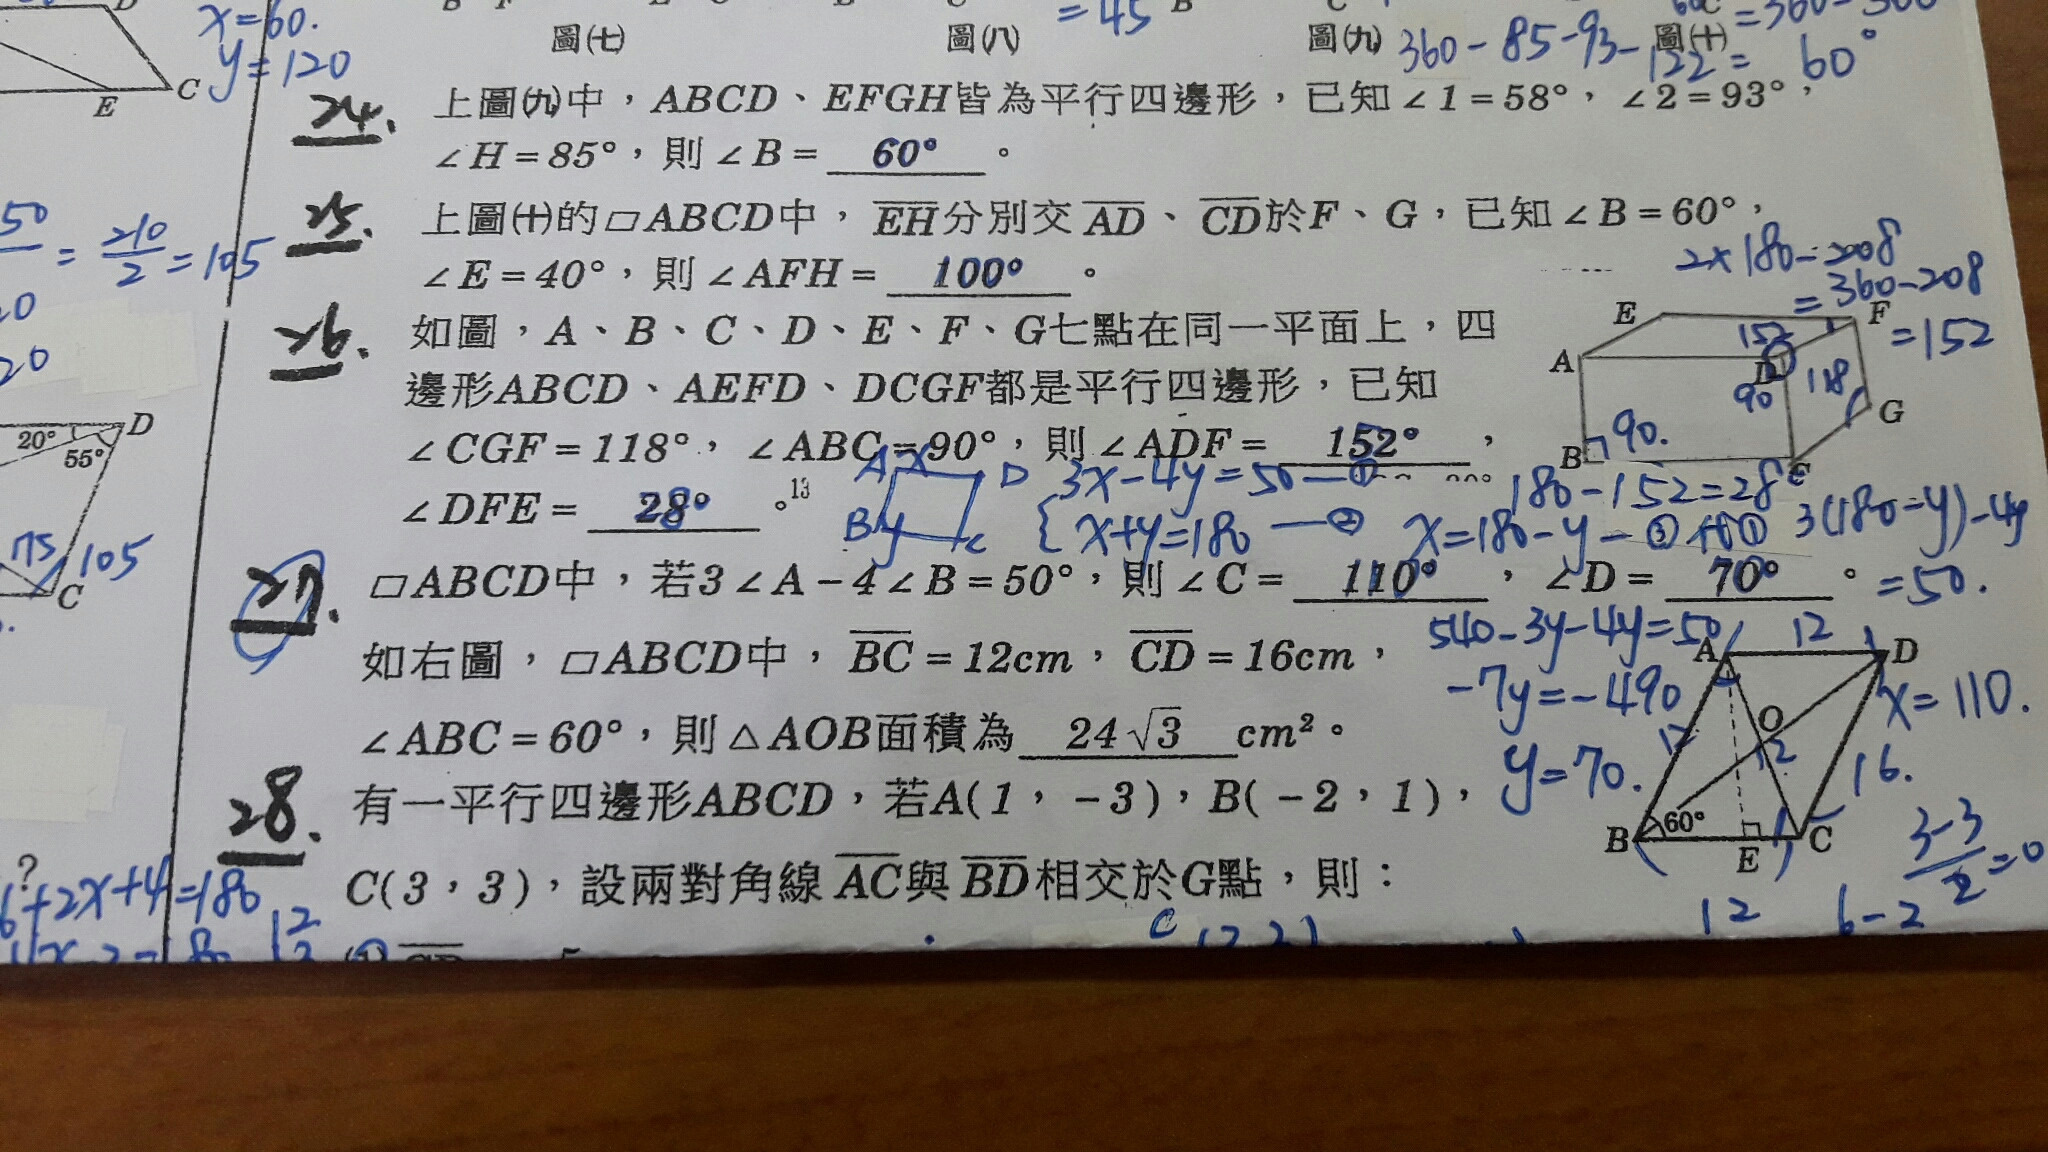 x=60.
y=120
圖(七)
圖(八)
=45
圖(九)
圖(十)
360-85-93-122= 60°
24. 上圖(九)中，ABCD、EFGH皆為平行四邊形，已知∠1=58°，∠2=93°，
∠H=85°，則∠B= 60° 。
25. 上圖(十)的▱ABCD中，EH分別交AD、CD於F、G，已知∠B=60°，
∠E=40°，則∠AFH= 100° 。
2×180-208
=360-208
=152
26. 如圖，A、B、C、D、E、F、G七點在同一平面上，四
邊形ABCD、AEFD、DCGF都是平行四邊形，已知
∠CGF=118°，∠ABC=90°，則∠ADF= 152° ，
∠DFE= 28° 。13
E F A D G B C
152 118 90 90.
180-152=28
A x D B y C
3x-4y=50—①
x+y=180—②
x=180-y—③代①
3(180-y)-4y
=50.
27. ▱ABCD中，若3∠A-4∠B=50°，則∠C= 110° ，∠D= 70° 。
540-3y-4y=50
-7y=-490
y=70.
x=110.
如右圖，▱ABCD中，BC=12cm，CD=16cm，
∠ABC=60°，則△AOB面積為 24√3 cm²。
A 12 D
O
12
16.
B 60° E C
12
28. 有一平行四邊形ABCD，若A(1，-3)，B(-2，1)，
C(3，3)，設兩對角線AC與BD相交於G點，則：
3-3/2=0
6-2
E C
50
=210/2=105
20
20
20° D
55°
75 105
C
?
6+2x+4=180
12